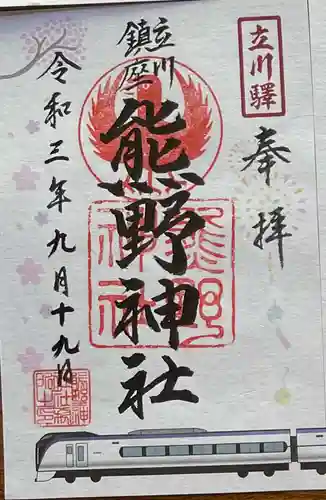 立川驛
奉拝
立川
鎮座
熊野神社
熊野
神社
令和三年九月十九日